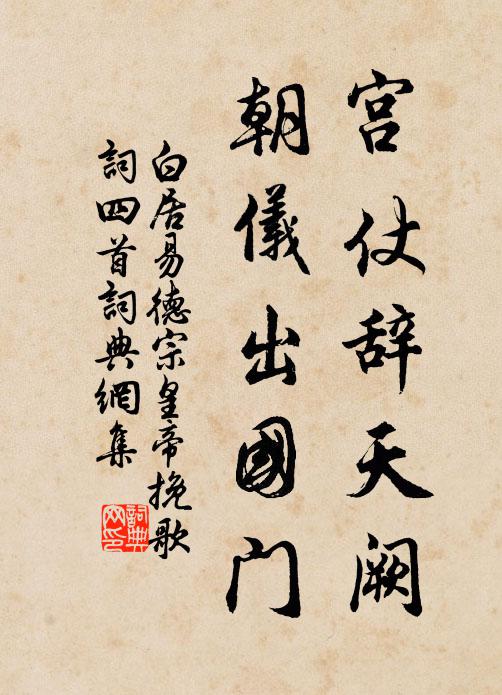 宫仗辞天阙
朝儀出國门
白居易德宗皇帝挽歌
詞四首詞典網集
詞典
网印